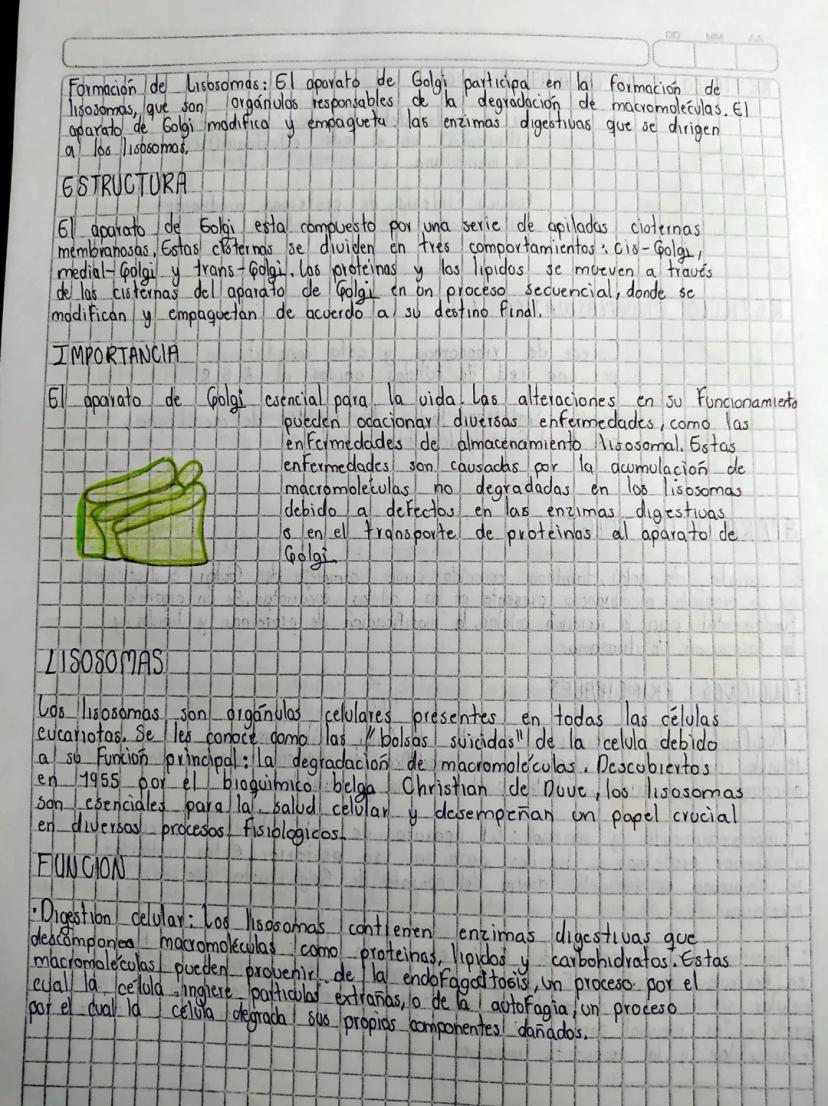 DD MM AA
Formación de Lisosomas: El aparato de Golgi participa en la formación de
lisosomas, que son orgánulos responsables de la degradación de macromoleculas. El
aparato de Golgi modifica y empaqueta las enzimas digestivas que se dirigen
a los lisosomas.
ESTRUCTURA
El aparato de Golgi esta compuesto por una serie de apiladas cisternas
membranosas. Estas cisternas se dividen en tres comportamientos: cis-Golgi,
medial-Golgi y trans-Golgi. Las proteinas y los lipidos se mueven a través
de las cisternas del aparato de Golgi en un proceso secuencial, donde se
modifican y empaquetan de acuerdo a su destino final.
IMPORTANCIA
El aparato de Golgi esencial para la vida. Las alteraciones en su Funcionamiento
pueden ocacionar diversas enfermedades, como las
enfermedades de almacenamiento lisosomal. Estas
enfermedades son causadas por la acumulación de
macromoleculas no degradadas en los lisosomas
debido a defectos en las enzimas digestivas
o en el transporte de proteinas al aparato de
Golgi.
LISOSOMAS
Los lisosomas son orgánulos celulares presentes en todas las células
eucariotas. Se les conoce como las "bolsas suicidas" de la celula debido
a su Función principal: la degradación de macromoléculas. Descubiertos
en 1955 por el bioquimico belga Christian de Duve, los lisosomas
son esenciales para la salud celular y desempeñan un papel crucial
en diversos procesos fisiologicos.
FUNCION
·Digestion celular: Los lisosomas contienen enzimas digestivas que
descomponen macromoléculas como proteinas, lipidos y carbohidratos. Estas
macromoléculas pueden provenir de la endofagocitosis, un proceso por el
cual la celula ingiere particulas extrañas, o de la autofagia, un proceso
por el cual la célula degrada sus propios componentes dañados.